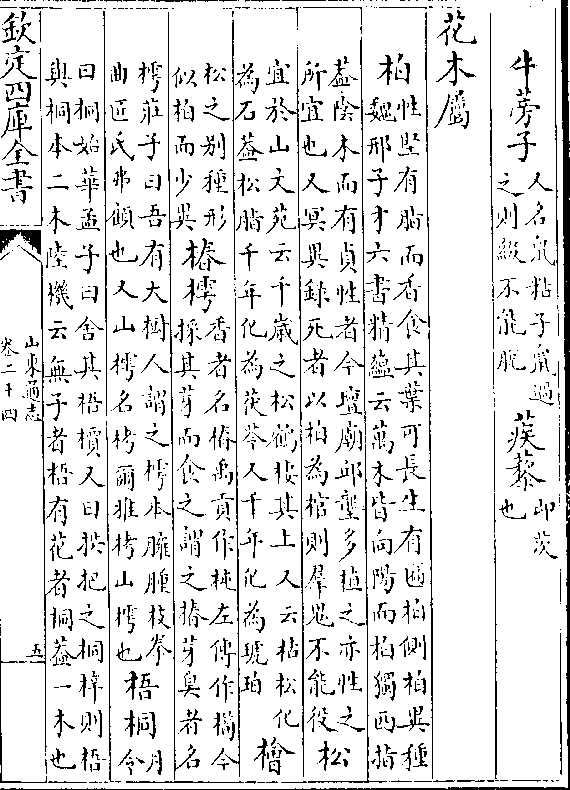 牛蒡子人名鼠粘子鼠過之則綴不能脫蒺藜即茨也
花木屬
柏性堅有脂而香食其葉可長生有匾柏側柏異種魏邢子才六書精蘊云萬木皆向陽而柏獨西指
蓋陰木而有貞性者今壇廟邱壟多植之亦性之所宜也又冥異録死者以柏為棺則羣鬼不能役松
宜於山文苑云千歲之松鶴棲其上又云枯松化為石蓋松脂千年化為茯苓又千年化為琥珀檜
松之別種形似柏而少異椿樗香者名椿禹貢作杶左傳作橁今採其芽而食之謂之椿芽臭者名
樗莊子曰吾有大樹人謂之樗本臃腫枝拳曲匠氏弗顧也又山樗名栲爾雅栲山樗也梧桐月令
曰桐始華孟子曰舍其梧檟又曰拱把之桐梓則梧與桐本二木陸機云無子者梧有花者桐蓋一木也
欽定四庫全書
山東通志
卷二十四
五